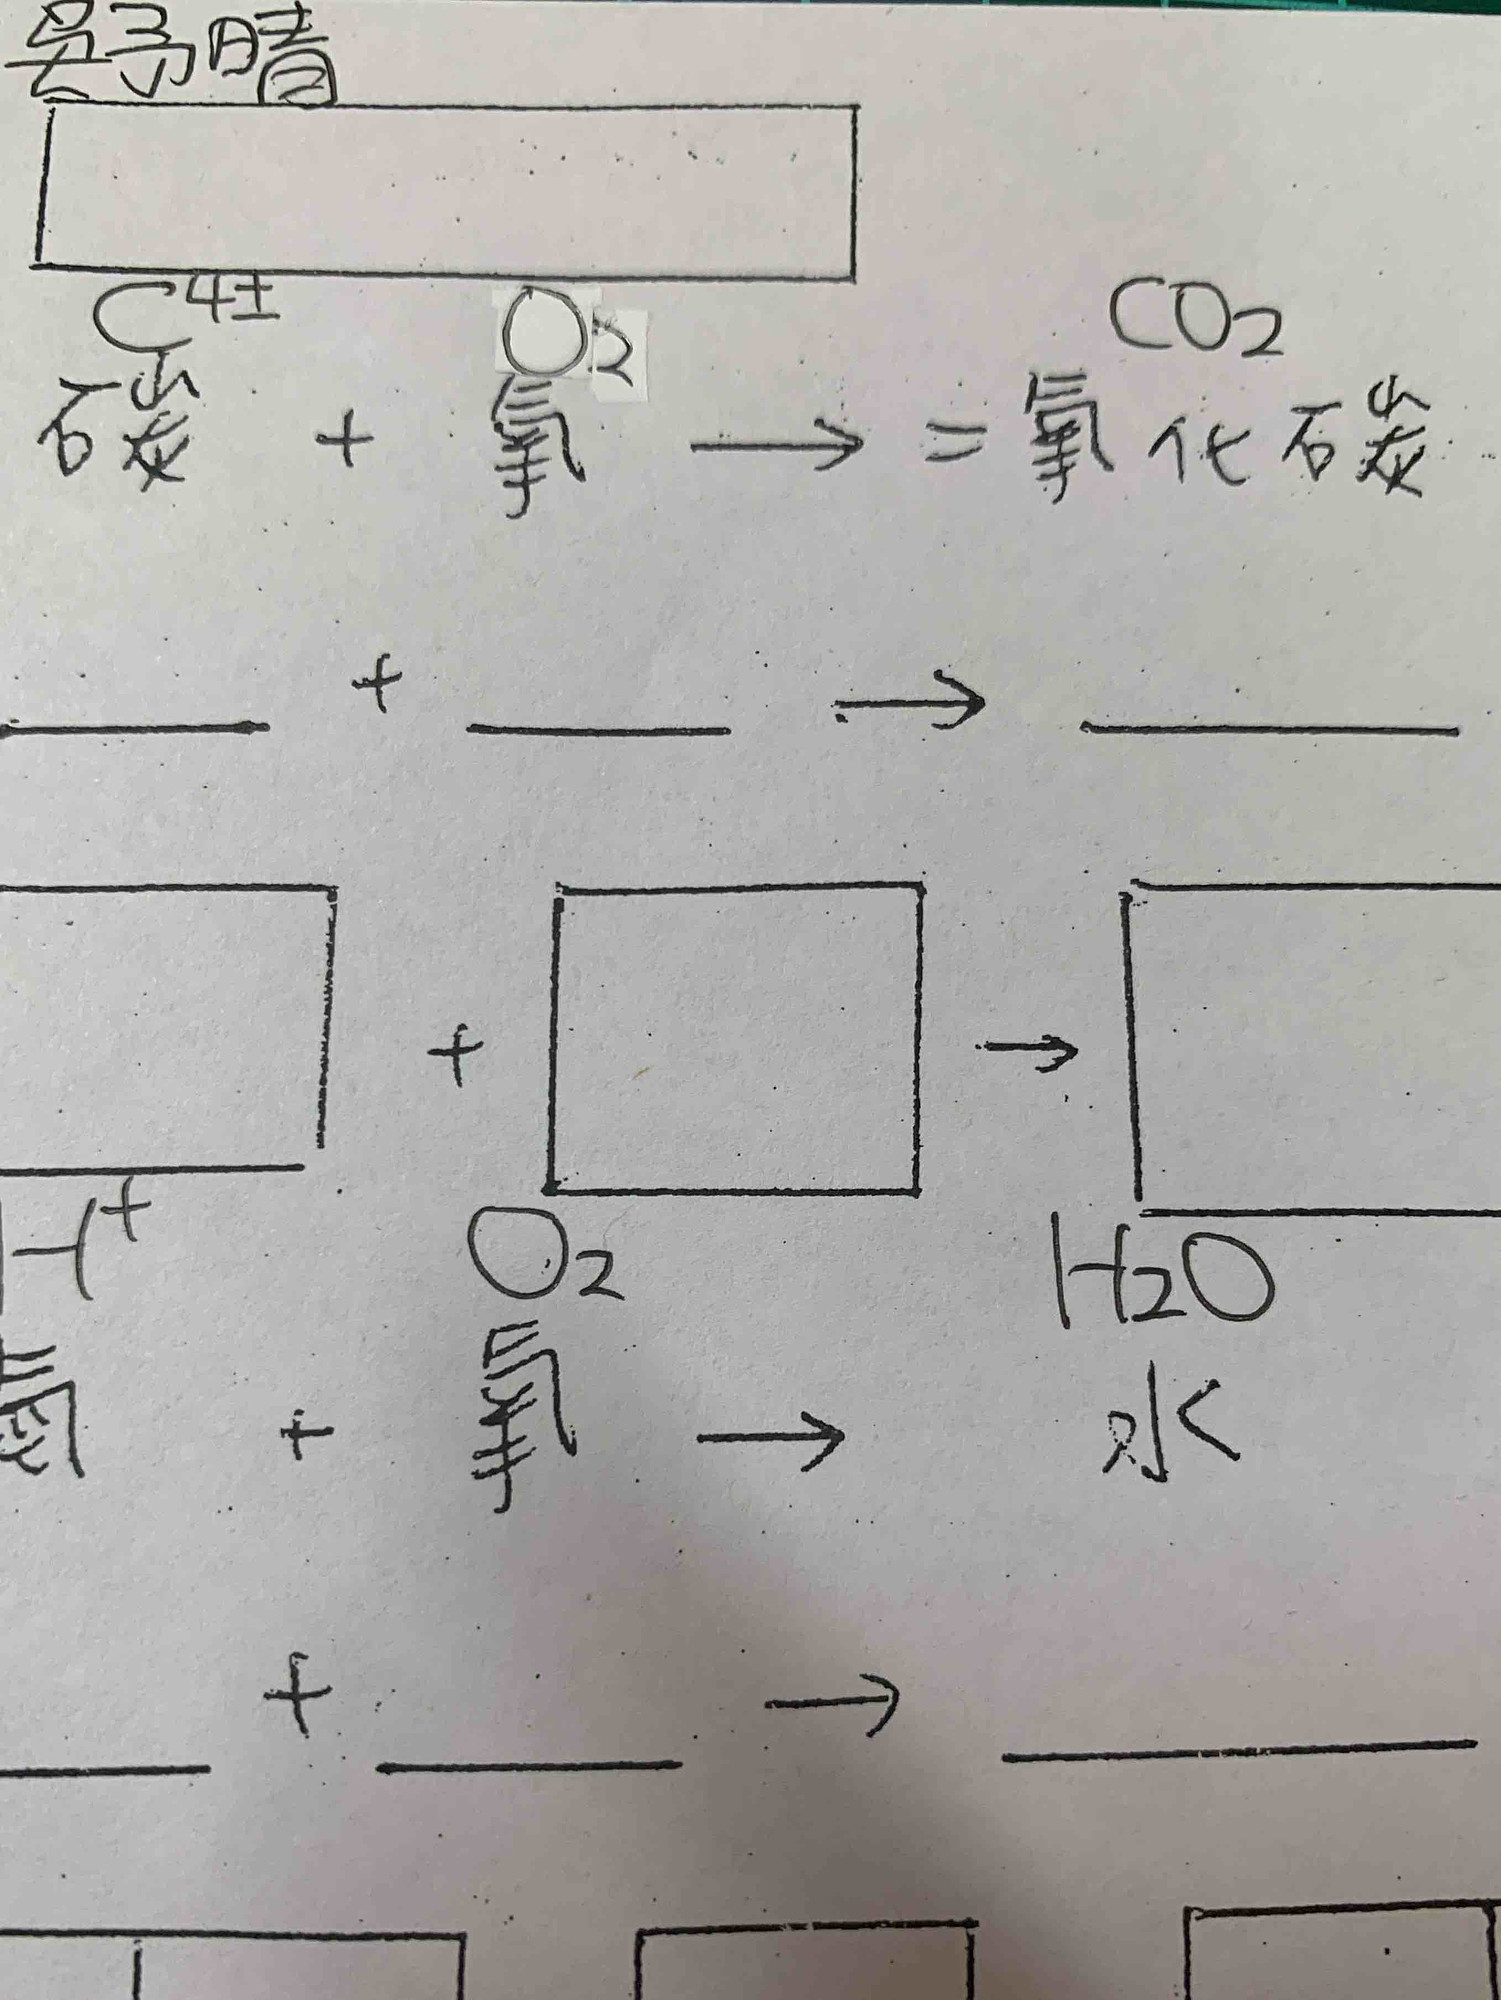 吳予晴
C4± O2 CO2
碳 + 氧 → 二氧化碳
+ →
+ →
H+ O2 H2O
氫 + 氧 → 水
+ →